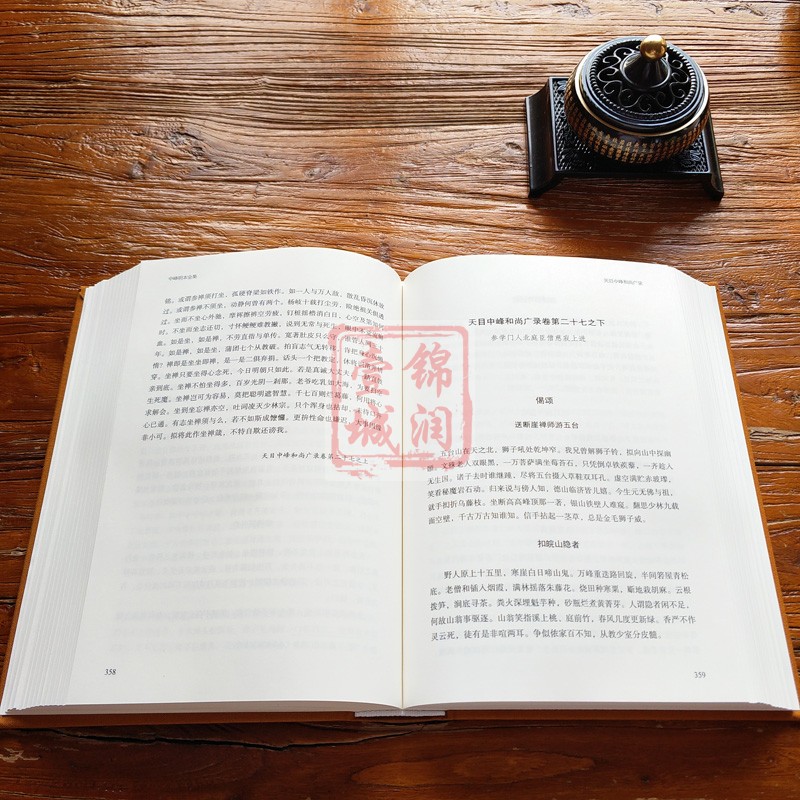 中峰明本全集
镜。或谓参禅须打坐，孤硬脊梁如铁作。如一人与万人敌，散乱昏沉休放
过。或谓参禅不须坐，动静何曾有两个。杨岐十载打尘劳，险绝相关俱透
过。坐而不坐心外驰，摩裈擦裤空劳疲。钉桩摇橹消白日，心空及第知何
时。不坐而坐志还切，寸怀
如是坐，如是禅，不劳直指与单传。
禅即是坐坐即禅，是一是二俱弃捐。话头一个把教
穿。坐禅只要坐得心念死，今日明朝只如此。若是真大丈夫，
亲到底。坐禅不怕坐得多，百岁光阴一刹那。老爷吃乳如大海，为要
生死魔。坐禅岂可为容易，莫把聪明遮智慧。千七百则烂葛藤，何用将心
求解会。坐到坐忘禅亦空，吐词凌灭少林宗。只个浑身也拈却，未待口开
心已通。有志坐禅须与么，若不如斯成懡㦬。更拚性命也嫌迟，大事因缘
非小可。拟将此作坐禅箴，不特自欺还谤我。
天目中峰和尚广录卷第二十七之上
358
天目中峰和尚广录
天目中峰和尚广录卷第二十七之下
参学门人北庭臣僧慈寂上进
偈颂
送断崖禅师游五台
五台山在天之北，狮子吼处乾坤窄。我兄曾解狮子铃，拟向山中探幽
老人双眼黑，一万菩萨满坐莓苔石。只凭倒卓铁蒺藜，一齐趁入
无生国。诸子去时谁继踵，尽将五台摄入草鞋双耳孔。虚空满贮赤玻璨，
笑看杨魔岩石动。归来说与傍人知，德山临济皆儿嬉。今生无无佛与祖，
就手扣折乌藤枝。坐断高高峰顶那一著，银山铁壁人难窥。翻思少林九载
面空壁，千古万古知谁知。信手拈起一茎草，总是金毛狮子威。
扣皖山隐者
野人原上十五里，寒崖白日啼山鬼。万峰重迭路回旋，半间箬屋青松
底。老僧和锸入烟霞，满林摇落朱藤花。烧田种寒粟，斸地栽胡麻。云根
拨笋，涧底寻茶。粪火深埋魁芋种，砂瓶烂煮黄菁芽。人谓隐者闲不足，
何故山翁事驱逐。山翁笑指溪上桃，庭前竹，春风几度更新绿。香严不作
灵云死，徒有是非喧两耳。争似侬家百不知，从教少室分皮髓。
359
锦润
壹城